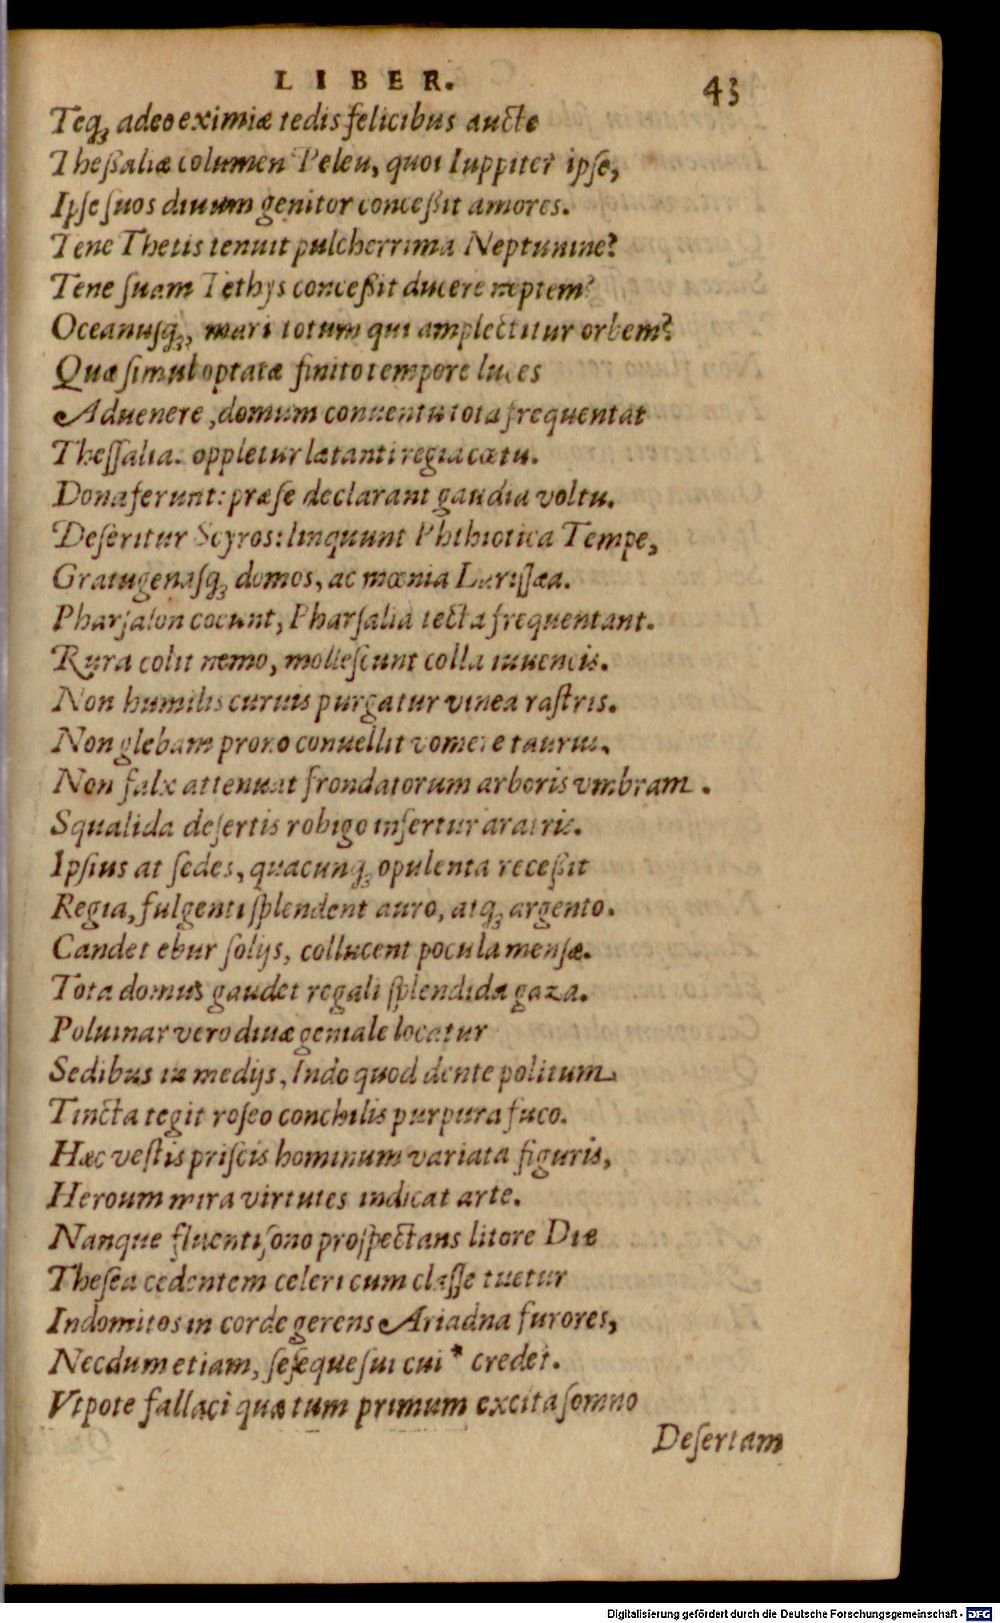 LIBER. 43
Teq́; adeo eximiæ tedis felicibus aucte
Theßaliæ columen Peleu, quoi Iuppiter ipſe,
Ipſe ſuos diuum genitor conceßit amores.
Tene Thetis tenuit pulcherrima Neptunine?
Tene ſuam Tethys conceßit ducere neptem?
Oceanuſq́;, mari totum qui amplectitur orbem?
Quæ ſimul optatæ finito tempore luces
Aduenere, domum conuentu tota frequentat
Theſſalia. oppletur lætanti regia cœtu.
Dona ferunt: præ ſe declarant gaudia voltu.
Deſeritur Scyros: linquunt Phthiotica Tempe,
Graiugenaſq́; domos, ac mœnia Lariſſæa.
Pharſalon coeunt, Pharſalia tecta frequentant.
Rura colit nemo, molleſcunt colla iuuencis.
Non humilis curuis purgatur vinea raſtris.
Non glebam prono conuellit vomere taurus.
Non falx attenuat frondatorum arboris vmbram.
Squalida deſertis robigo infertur aratris.
Ipſius at ſedes, quacunq́; opulenta receßit
Regia, fulgenti ſplendent auro, atq́; argento.
Candet ebur ſolijs, collucent pocula menſæ.
Tota domus gaudet regali ſplendida gaza.
Poluinar vero diuæ geniale locatur
Sedibus in medijs, Indo quod dente politum
Tincta tegit roſeo conchilis purpura fuco.
Hæc veſtis priſcis hominum variata figuris,
Heroum mira virtutes indicat arte.
Nanque fluentiſono proſpectans litore Diæ
Theſea cedentem celeri cum claſſe tuetur
Indomitos in corde gerens Ariadna furores,
Necdum etiam, ſeſeque ſui cui * credet.
Vtpote fallaci quæ tum primum excita ſomno
Deſertam
Digitalisierung gefördert durch die Deutsche Forschungsgemeinschaft - DFG